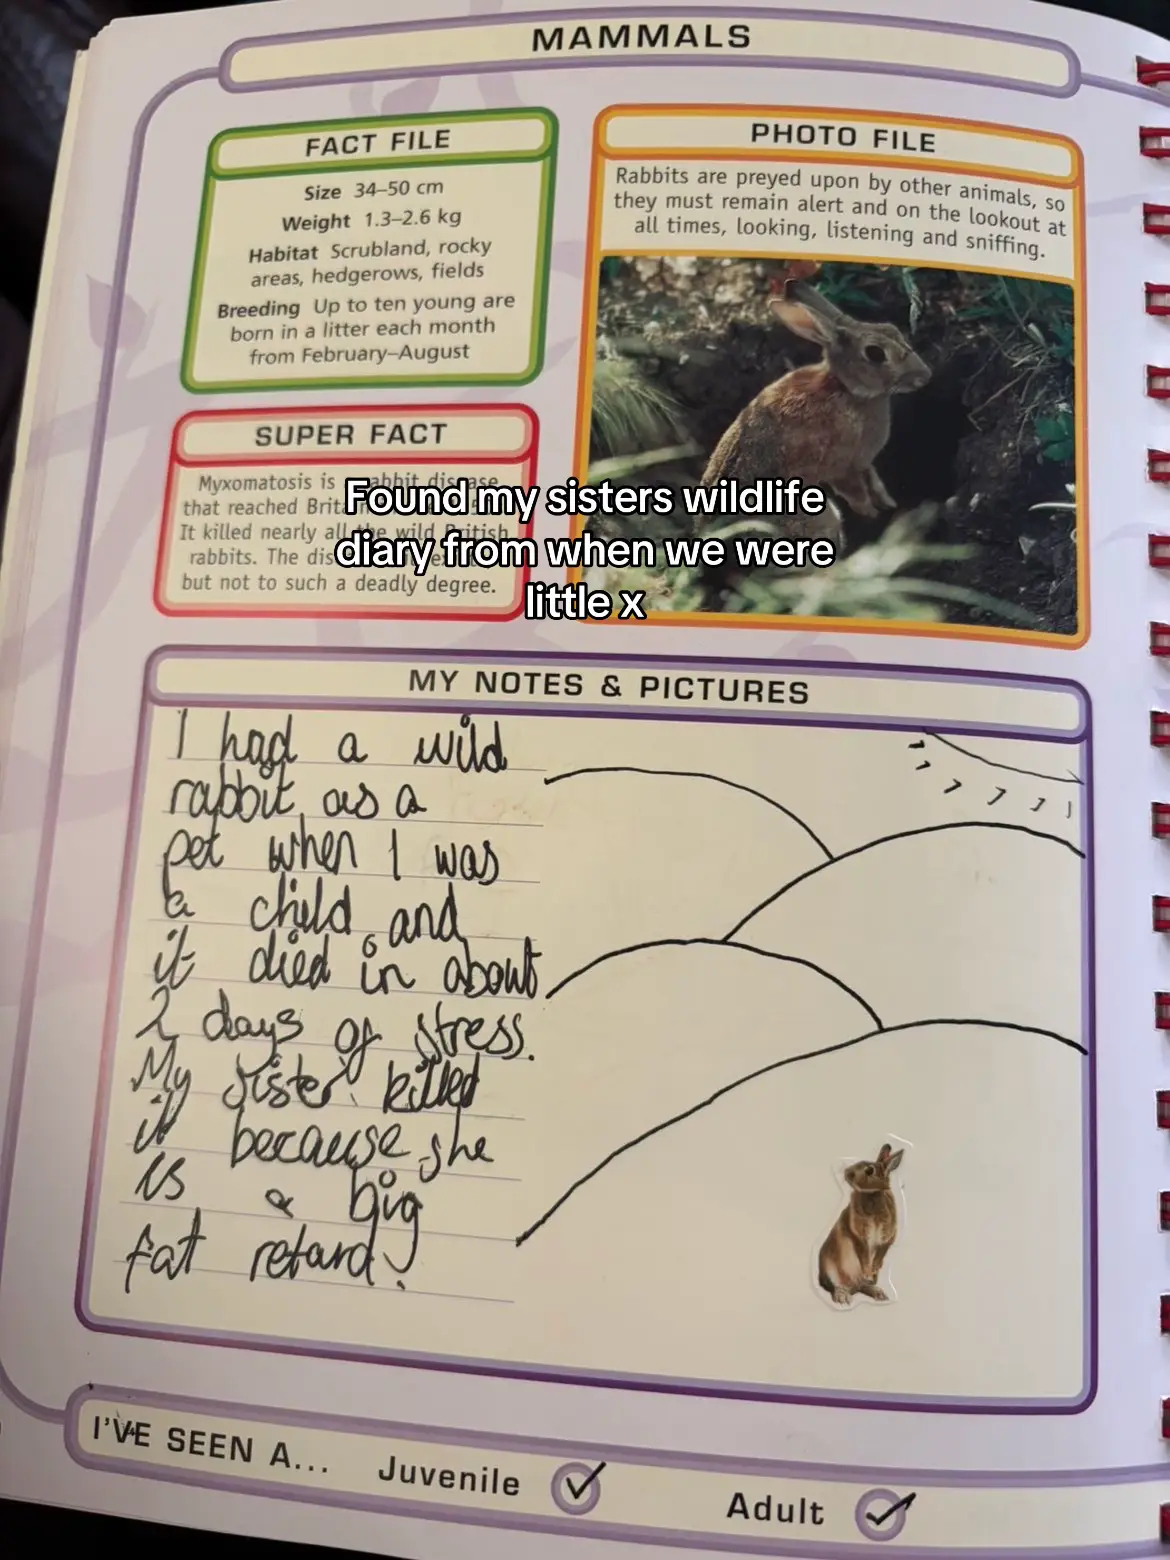 MAMMALS
FACT FILE
Size 34–50 cm
Weight 1.3–2.6 kg
Habitat Scrubland, rocky
areas, hedgerows, fields
Breeding Up to ten young are
born in a litter each month
from February–August
PHOTO FILE
Rabbits are preyed upon by other animals, so
they must remain alert and on the lookout at
all times, looking, listening and sniffing.
SUPER FACT
Myxomatosis is a rabbit disease
that reached
It killed nearly all the wild British
rabbits. The
but not to such a deadly degree.
Found my sisters wildlife
diary from when we were
little x
MY NOTES & PICTURES
I had a wild
rabbit as a
pet when I was
a child and
it died in about
2 days of stress.
My sister killed
it because she
is a big
fat retard!
I'VE SEEN A... Juvenile Adult